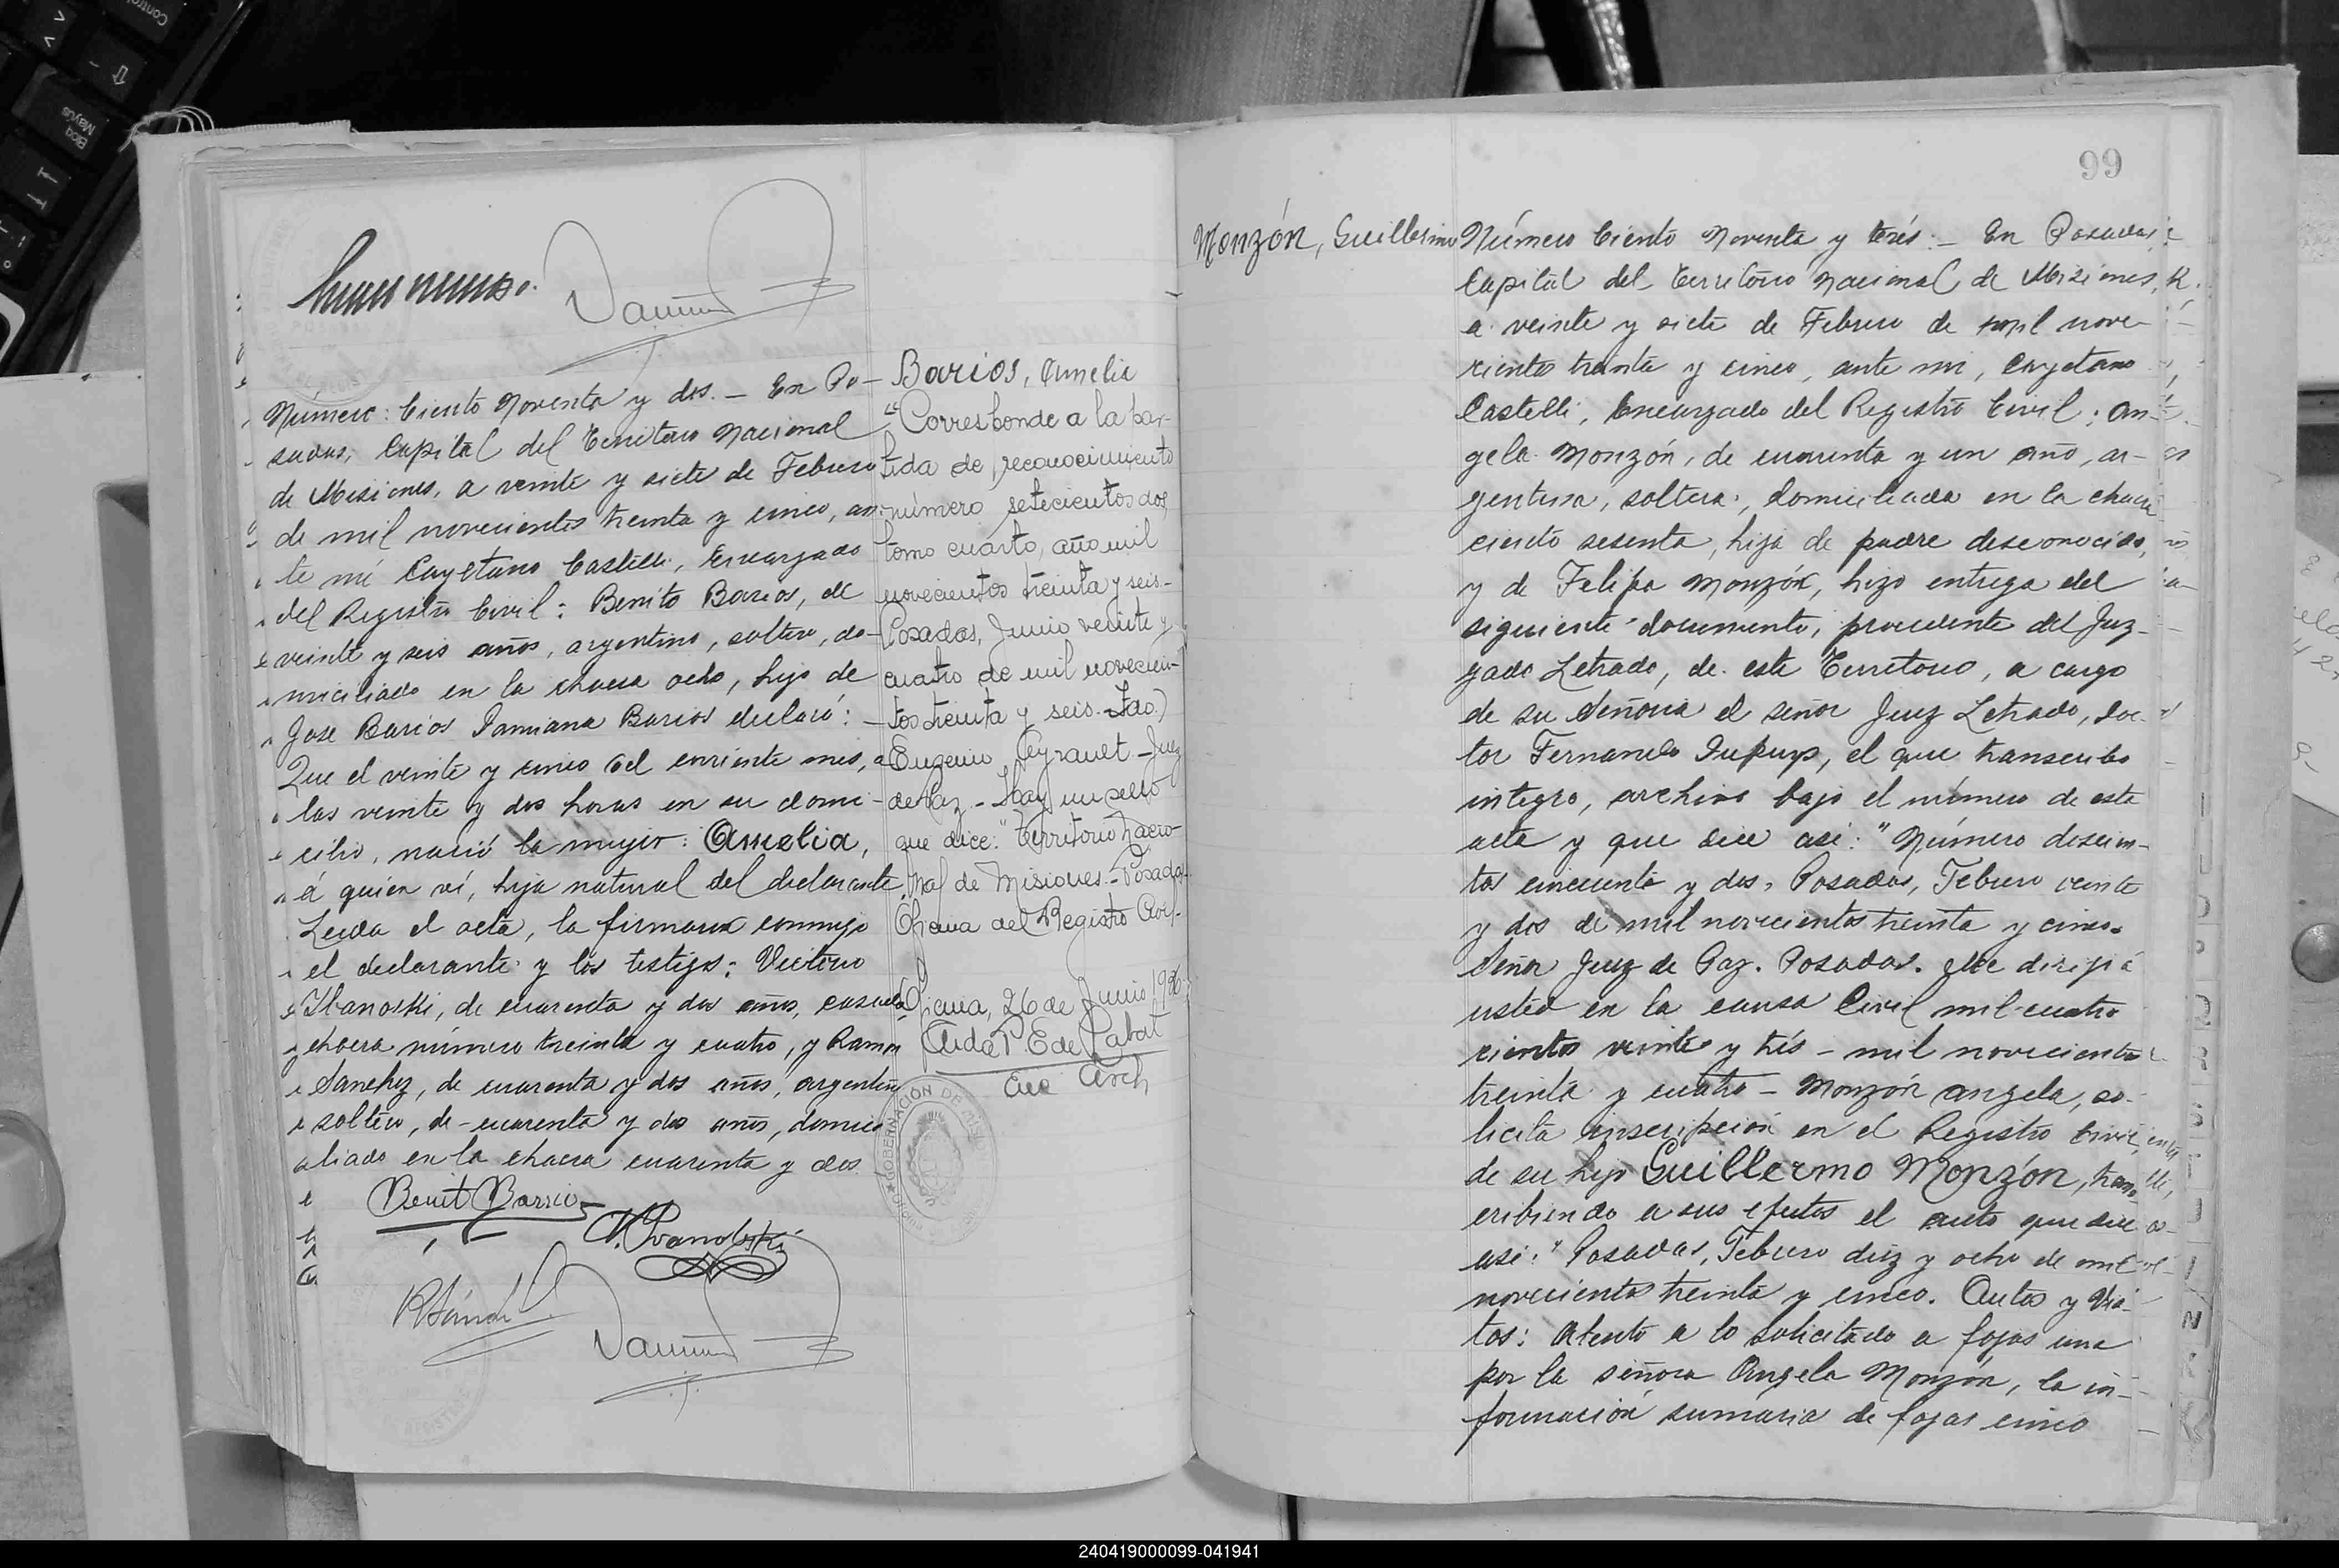 Número: Ciento Noventa y dos. — En Po-
sadas, Capital del Territorio Nacional
de Misiones, a veinte y siete de Febrero
de mil novecientos treinta y cinco, an-
te mí Cayetano Castelli, Encargado
del Registro Civil: Benito Barios, de
veinte y seis años, argentino, soltero, do-
miciliado en la chacra ocho, hijo de
Jose Barios Damiana Barios declaró:
Que el veinte y cinco del corriente mes, a
las veinte y dos horas en su domi-
cilio, nació la mujer: Amelia,
á quien ví, hija natural del declarante
Leida el acta, la firmaron conmigo
el declarante y los testigos: Victorio
Ibanoski, de cuarenta y dos años, casado
chacra número treinta y cuatro, y Ramon
Sanchez, de cuarenta y dos años, argentino
soltero, de cuarenta y dos años, domici
liado en la chacra cuarenta y dos
Benit Barrios
V. Ivanoski
Barios, Amelia
"Corresponde a la par-
tida de reconocimiento
número setecientos dos,
tomo cuarto, año mil
novecientos treinta y seis-
Posadas, Junio veinte y
cuatro de mil novecien-
tos treinta y seis. Fdo.)
Eugenio - Juez
de Paz. - Hay un sello
que dice: "Territorio Nacio-
nal de Misiones. - Posadas
Oficina del Registro Civil-
Oficina, 26 de Junio 1936
Aida P. E de
Enc Arch
GOBERNACIÓN DE
99
Monzón, Guillermo
Número Ciento Noventa y trés: — En Posadas
Capital del Territorio Nacional de Misiones,
a veinte y siete de Febrero de mil nove-
cientos treinta y cinco, ante mi, Cayetano
Castelli, Encargado del Registro Civil; An-
gela Monzón, de cuarenta y un año, ar-
gentina, soltera, domiciliada en la chacra
ciento sesenta, hija de padre desconocido,
y de Felipa Monzón, hizo entrega del
siguiente documento, procedente del Juz-
gado Letrado, de este Territorio, a cargo
de su Señoria el señor Juez Letrado, doc-
tor Fernando Dupuys, el que transcribo
integro, archivo bajo el número de esta
acta y que dice asi: "Número doscien-
tos cincuenta y dos, Posadas, Febrero veinte
y dos de mil novecientos treinta y cinco.
Señor Juez de Paz. Posadas. Me dirijo á
usted en la causa Civil mil cuatro
cientos veinte y trés - mil novecientos
treinta y cuatro - Monzón Angela, so-
licita inscripción en el Registro Civil,
de su hijo Guillermo Monzón, trans
cribiendo a sus efectos el auto que dice
asi: "Posadas, Febrero diez y ocho de mil
novecientos treinta y cinco. Autos y Vis-
tos: Atento a lo solicitado a fojas una
por la señora Angela Monzón, la in-
formación sumaria de fojas cinco
240419000099-041941